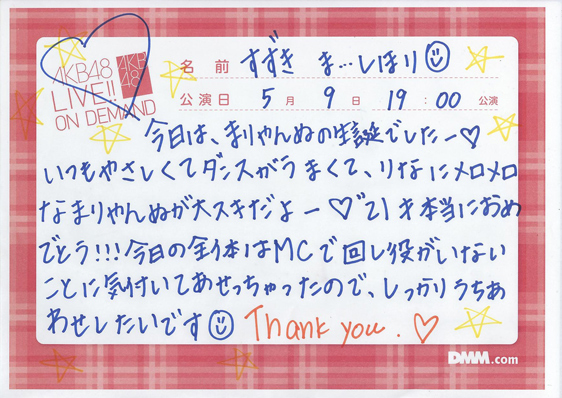 AKB48
LIVE!!
ON DEMAND
AKB
48
名前 すずき ま…しほり
公演日 5月9日 19:00公演
今日は、まりやんぬの生誕でしたー♡
いつもやさしくてダンスがうまくて、りなにメロメロ
なまりやんぬが大スキだよー♡21才本当におめ
でとう!!!今日の全体はMCで回し役がいない
ことに気付いてあせっちゃったので、しっかりうちあ
わせしたいです
Thank you.♡
DMM.com